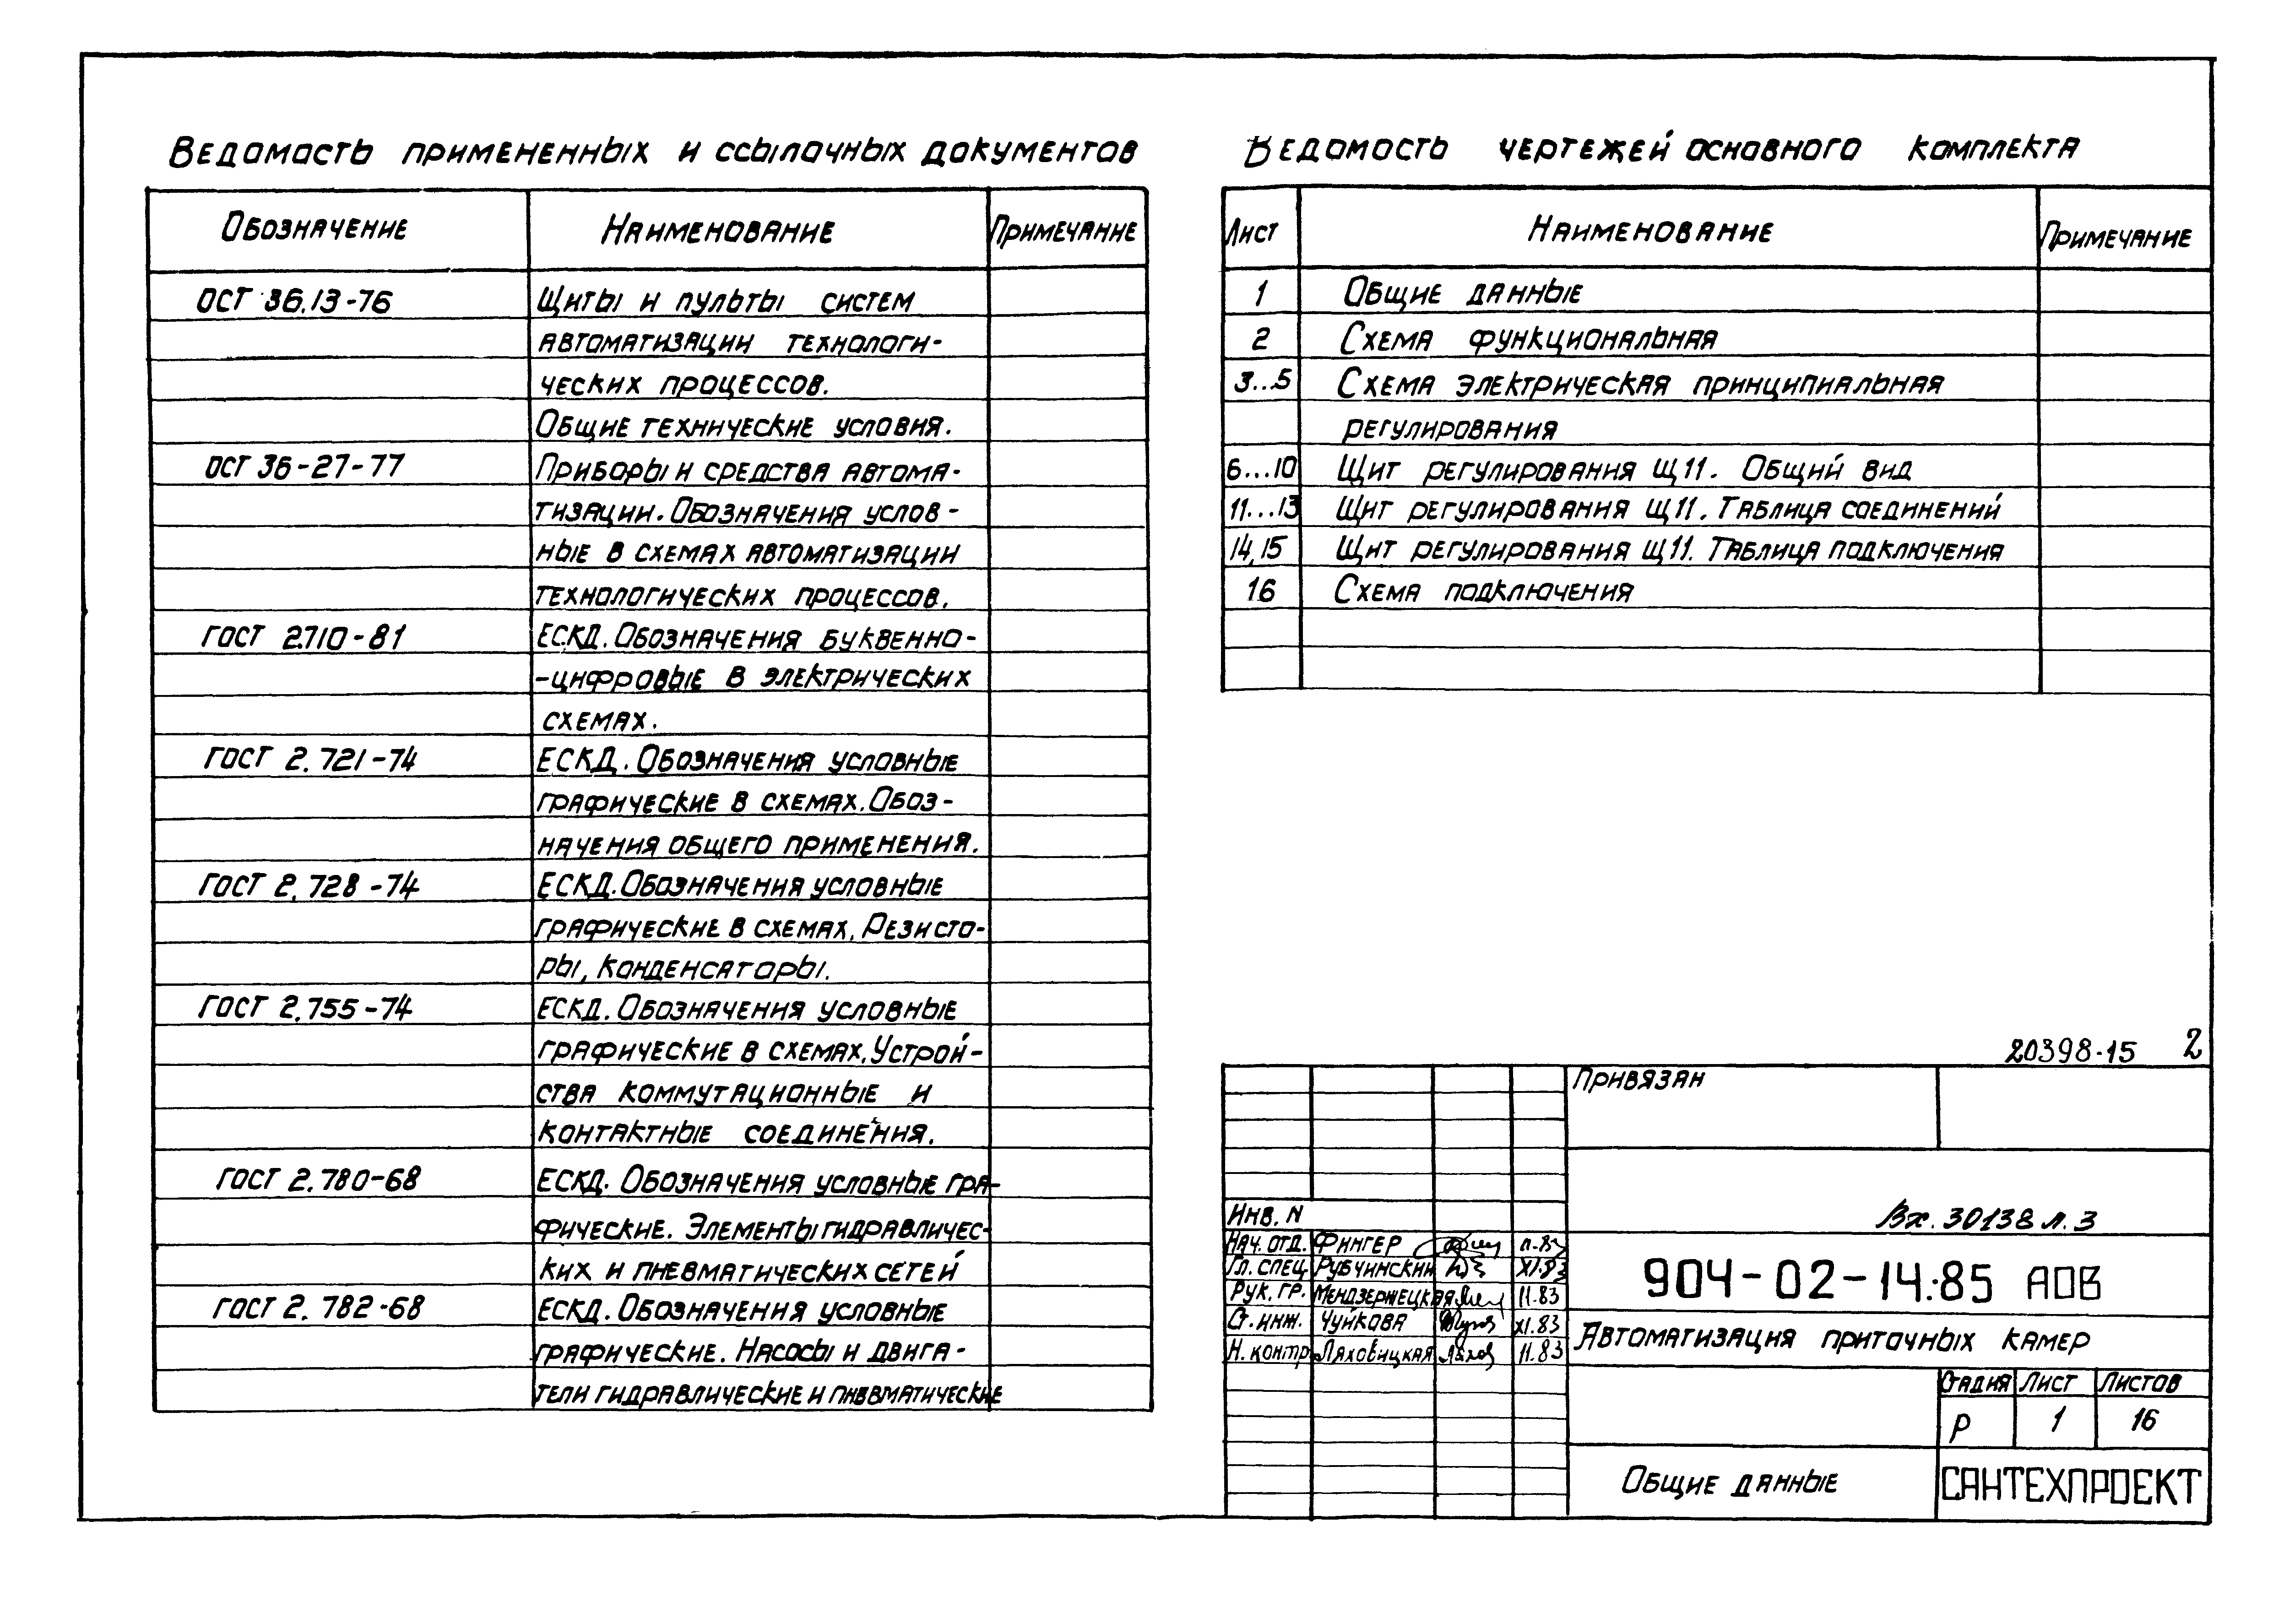 Ведомость примененных и ссылочных документов
Обозначение Наименование Примечание
ОСТ 36.13-76 Щиты и пульты систем
автоматизации технологи-
ческих процессов.
Общие технические условия.
ОСТ 36-27-77 Приборы и средства автома-
тизации. Обозначения услов-
ные в схемах автоматизации
технологических процессов.
ГОСТ 2.710-81 ЕСКД. Обозначения буквенно-
-цифровые в электрических
схемах.
ГОСТ 2.721-74 ЕСКД. Обозначения условные
графические в схемах. Обоз-
начения общего применения.
ГОСТ 2.728-74 ЕСКД. Обозначения условные
графические в схемах, Резисто-
ры, конденсаторы.
ГОСТ 2.755-74 ЕСКД. Обозначения условные
графические в схемах, Устрой-
ства коммутационные и
контактные соединения.
ГОСТ 2.780-68 ЕСКД. Обозначения условные гра-
фические. Элементы гидравличес-
ких и пневматических сетей
ГОСТ 2.782-68 ЕСКД. Обозначения условные
графические. Насосы и двига-
тели гидравлические и пневматические
Ведомость чертежей основного комплекта
Лист Наименование Примечание
1 Общие данные
2 Схема функциональная
3...5 Схема электрическая принципиальная
регулирования
6...10 Щит регулирования Щ11. Общий вид
11...13 Щит регулирования Щ11. Таблица соединений
14,15 Щит регулирования Щ11. Таблица подключения
16 Схема подключения
20398-15 2
Привязан
Инв. N
Вх. 30138 л. 3
Нач. отд. Фингер 11.83
Гл. спец Рубчинский XI.83
Рук. гр. Мендзержецкая 11.83
Ст. инж. Чуйкова XI.83
Н. контр Ляховицкая 11.83
904-02-14.85 АОВ
Автоматизация приточных камер
Стадия Лист Листов
Р 1 16
Общие данные
САНТЕХПРОЕКТ